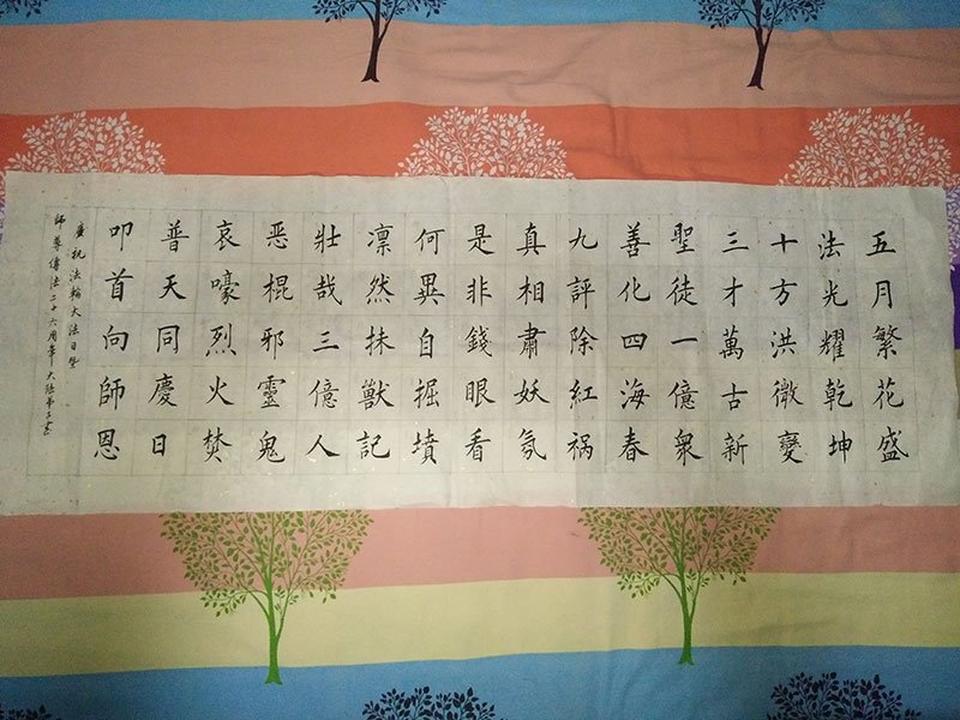 五月繁花盛
法光耀乾坤
十方洪微變
三才萬古新
聖徒一億衆
善化四海春
九評除紅祸
真相肅妖氛
是非錢眼看
何異自掘墳
凛然抹獸記
壯哉三億人
恶棍邪靈鬼
哀嚎烈火焚
普天同慶日
叩首向師恩
慶祝法輪大法日暨
師尊傳法二十六周年大陸弟子書